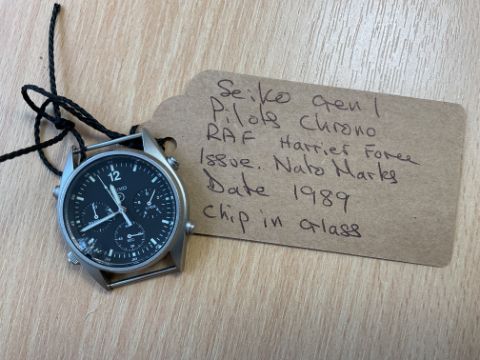 12
SEIKO
Seiko Gen 1
Pilots Chrono
RAF Harrier Force
Issue. Nato Marks
Date 1989
Chip in Glass